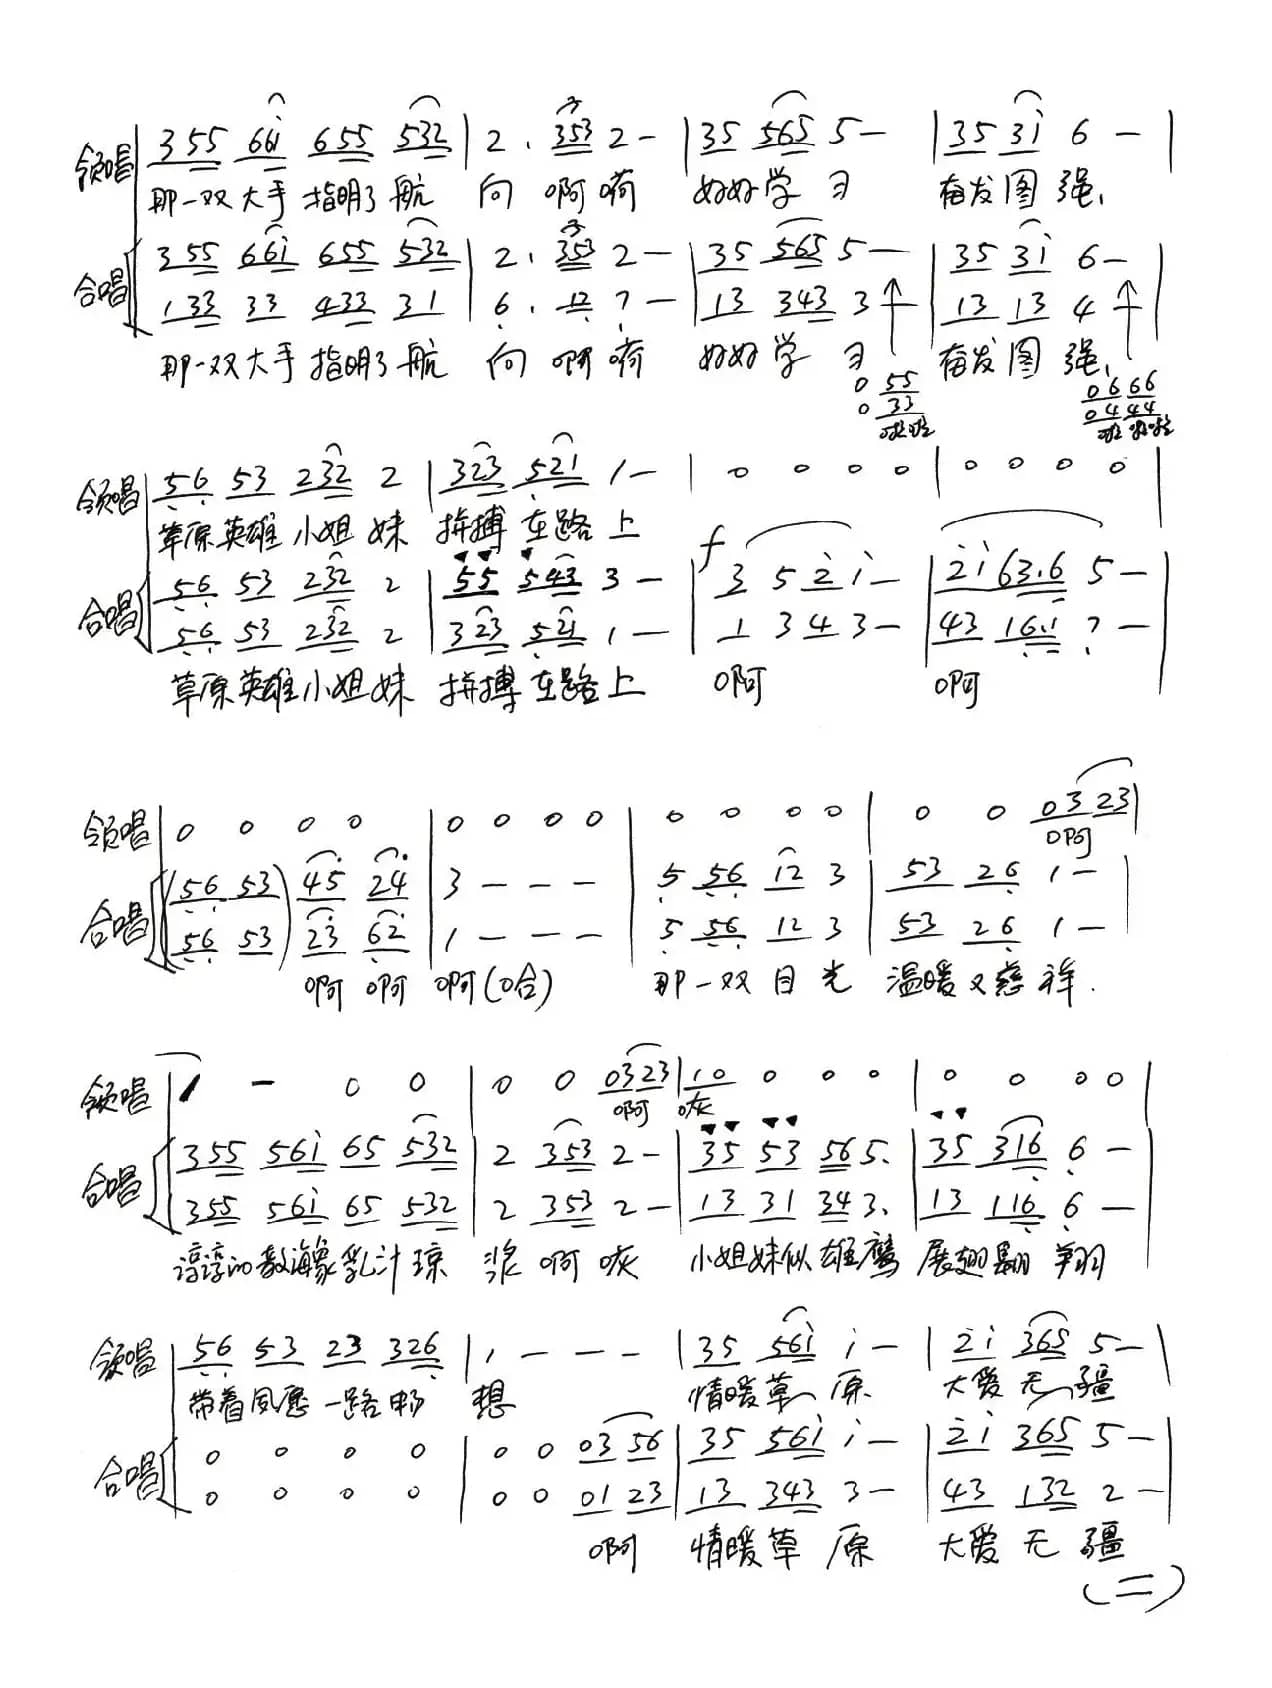 领唱 | 3 5 5 6 6 i 6 5 5 5 3 2 | 2 . 3 5 3 2 — | 3 5 5 6 5 5 — | 3 5 3 i 6 — |
那一双大手 指明了航 向 啊嗬 好好学习 奋发图强、
合唱 3 5 5 6 6 i 6 5 5 5 3 2 | 2 . 3 5 3 2 — | 3 5 5 6 5 5 — | 3 5 3 i 6 —
1 3 3 3 3 4 3 3 3 1 | 6 . 1 2 7 — | 1 3 3 4 3 3 | 1 3 1 3 4
那一双大手 指明了航 向 啊嗬 好好学习 奋发图强、
0 5 5 0 6 6 6
0 3 3 0 4 4 4
啦啦 啦 啦啦
领唱 | 5 6 5 3 2 3 2 2 | 3 2 3 5 2 1 1 — | 0 0 0 0 | 0 0 0 0 |
草原英雄小姐妹 拼搏在路上
f
合唱 5 6 5 3 2 3 2 2 | 5 5 5 4 3 3 — | 3 5 2 i — | 2 i 6 3 . 6 5 — |
5 6 5 3 2 3 2 2 | 3 2 3 5 2 1 1 — | 1 3 4 3 — | 4 3 1 6 . 1 7 — |
草原英雄小姐妹 拼搏在路上 啊 啊
领唱 | 0 0 0 0 | 0 0 0 0 | 0 0 0 0 | 0 0 0 3 2 3 |
啊
合唱 (5 6 5 3) 4 5 2 4 | 3 — — — | 5 5 6 1 2 3 | 5 3 2 6 1 — |
5 6 5 3 2 3 6 2 | 1 — — — | 5 5 6 1 2 3 | 5 3 2 6 1 — |
啊 啊 啊(哈) 那一双目光 温暖又慈祥.
领唱 | 1 — 0 0 | 0 0 0 3 2 3 | 1 0 0 0 0 | 0 0 0 0 |
啊 咴
合唱 3 5 5 5 6 i 6 5 5 3 2 | 2 3 5 3 2 — | 3 5 5 3 5 6 5. | 3 5 3 1 6 6 — |
3 5 5 5 6 i 6 5 5 3 2 | 2 3 5 3 2 — | 1 3 3 1 3 4 3. | 1 3 1 1 6 6 — |
谆谆的教诲象乳汁琼 浆 啊咴 小姐妹似雄鹰 展翅翱翔
领唱 | 5 6 5 3 2 3 3 2 6 | 1 — — — | 3 5 5 6 i i — | 2 i 3 6 5 5 — |
带着夙愿一路畅 想 情暖草原 大爱无疆
合唱 0 0 0 0 | 0 0 0 3 5 6 | 3 5 5 6 i i — | 2 i 3 6 5 5 — |
0 0 0 0 | 0 0 0 1 2 3 | 1 3 3 4 3 3 — | 4 3 1 3 2 2 — |
啊 情暖草原 大爱无疆
(二)